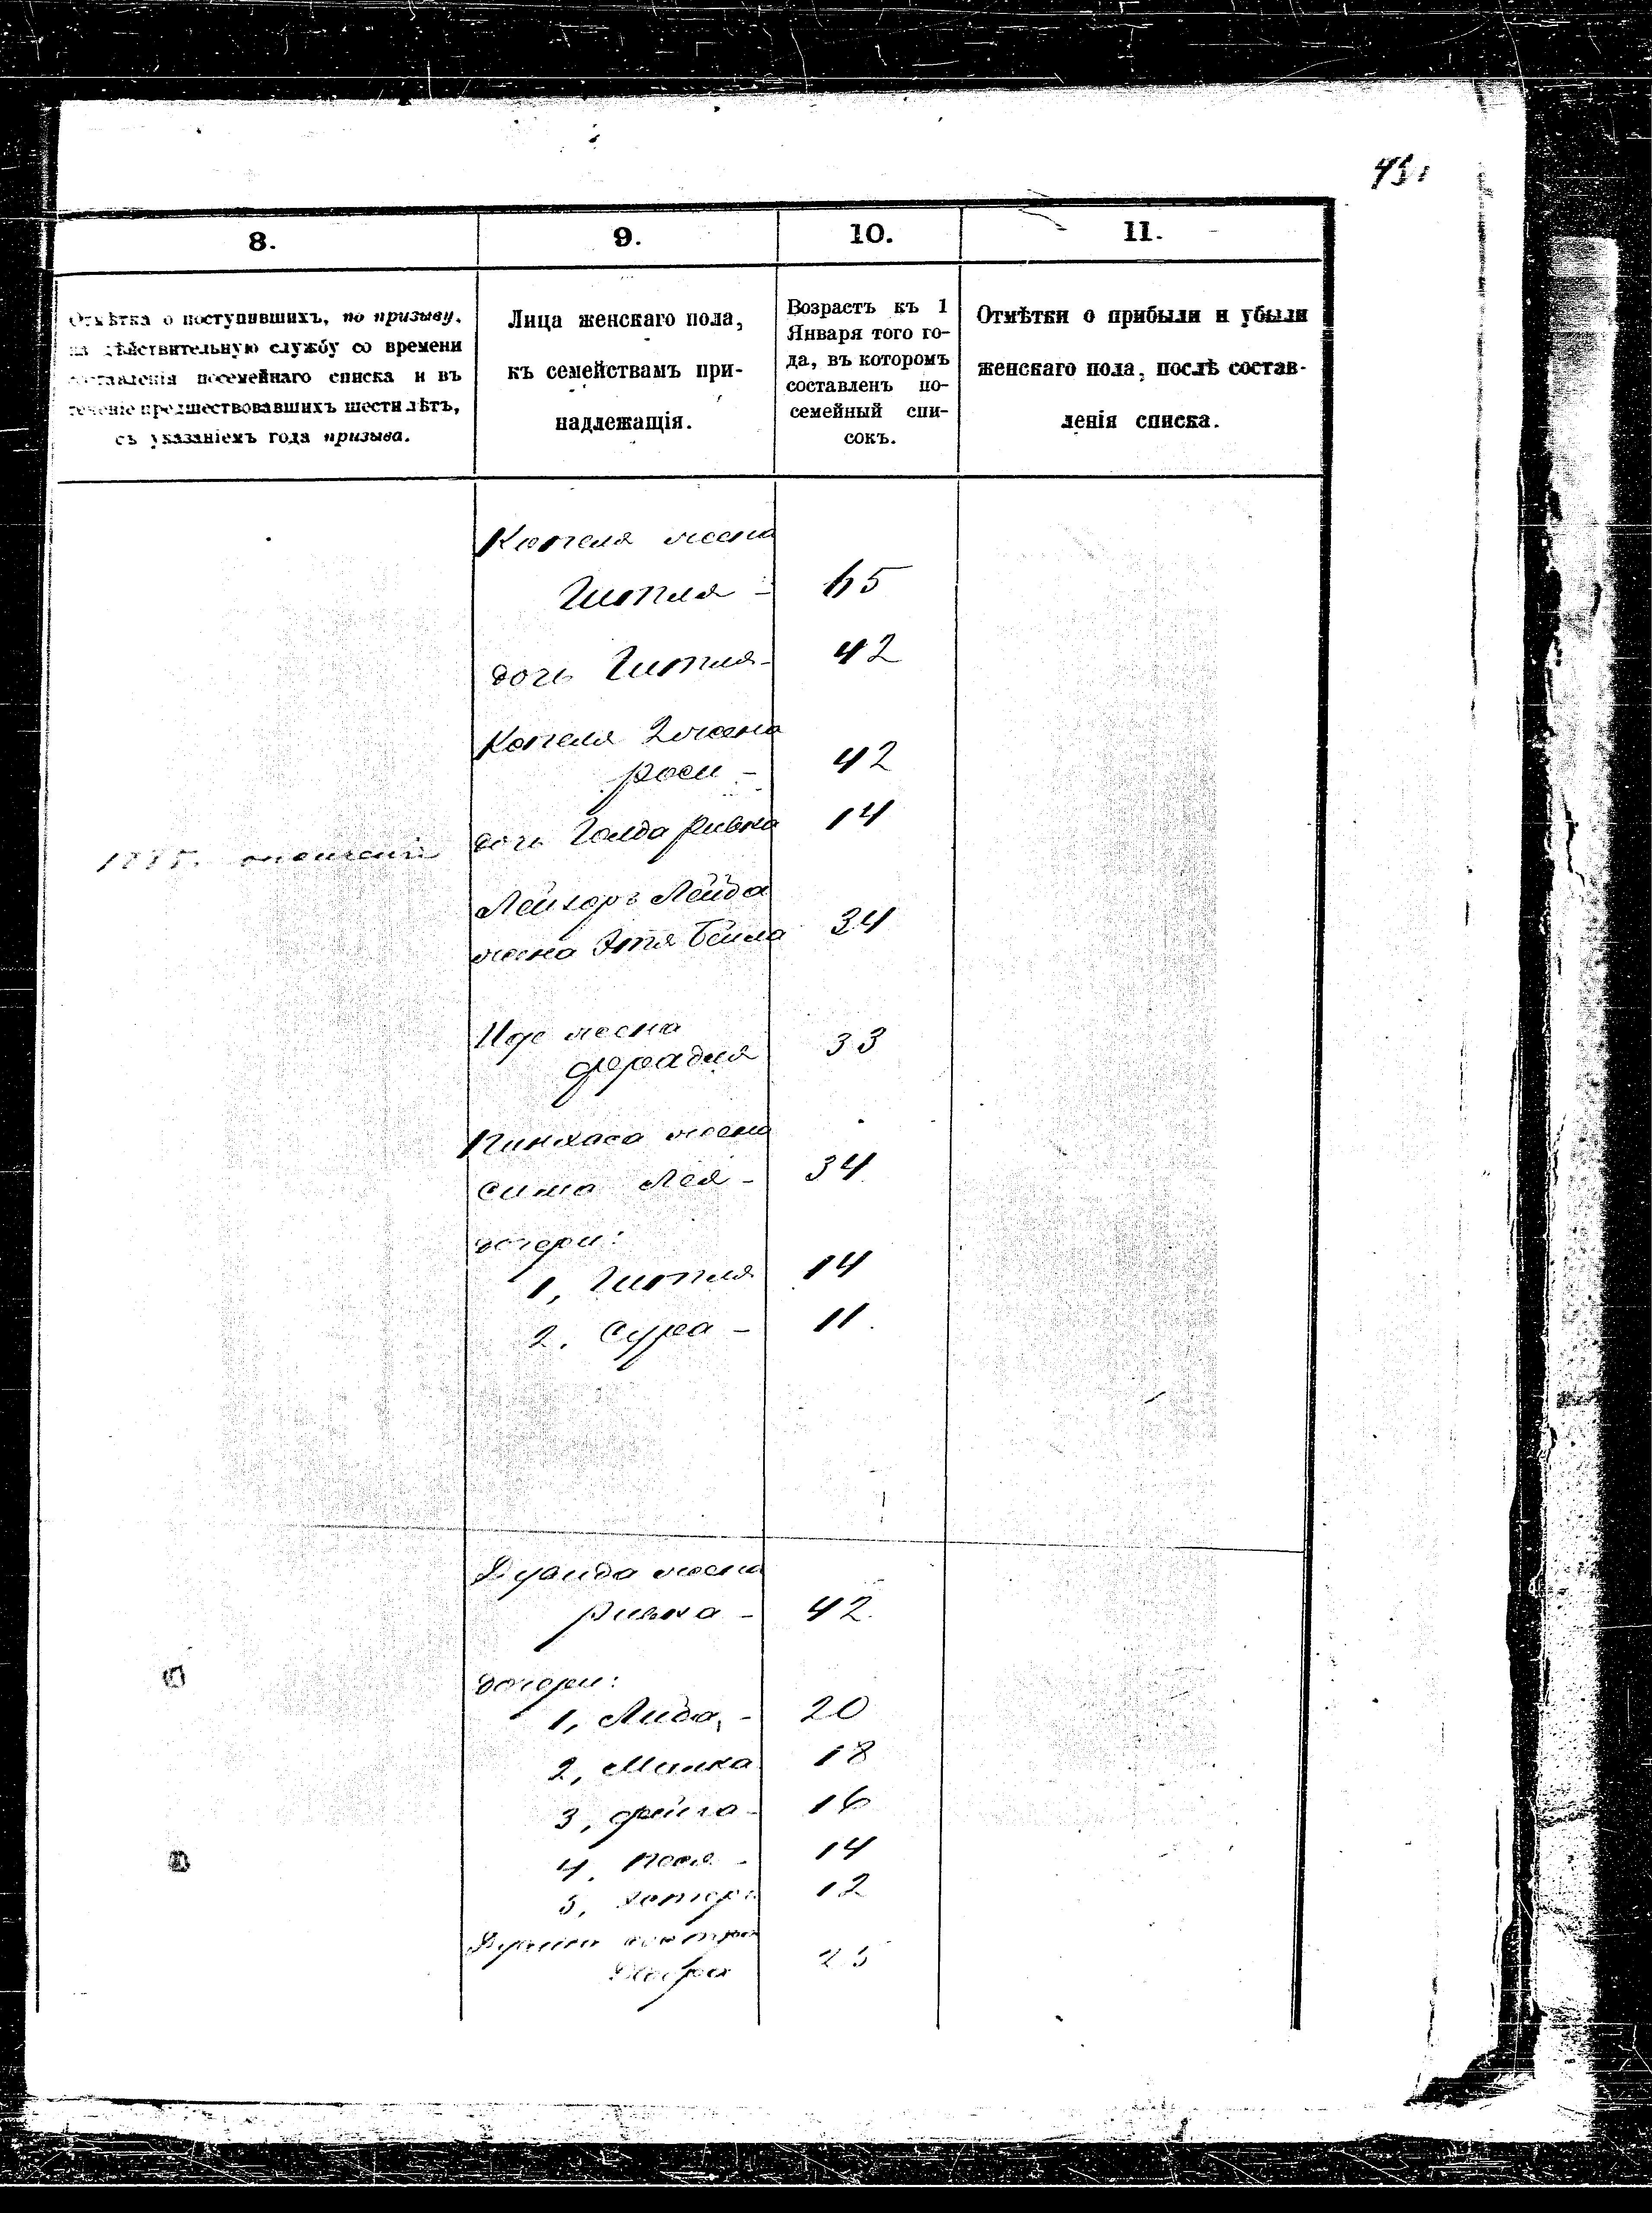 8.
9.
10.
11.
Отмѣтка о поступившихъ, по призыву,
на дѣйствительную службу со времени
составленія посемейнаго списка и въ
теченіе предшествовавшихъ шести лѣтъ,
съ указаніемъ года призыва.
Лица женскаго пола,
къ семействамъ при-
надлежащія.
Возрастъ къ 1
Января того го-
да, въ которомъ
составленъ по-
семейный спи-
сокъ.
Отмѣтки о прибыли и убыли
женскаго пола, послѣ состав-
ленія списка.
Копеля жена
Гитля - 65
дочь Гитля - 42
Копеля 2 жена
Роси - 42
дочь Голда Ривка 14
Лейзоръ Лейба
жена Этя Бейла 34
Иде жена
Фрадля 33
Пинхаса жена
Сима Лея - 34
дочери:
1, Гитля 14
2, Сура - 11.
жена
Ривка - 42.
дочери:
1, Либа, - 20
2, Минка 18
3, Фейга - 16
4, Песя - 14
5, 12
сестра
25